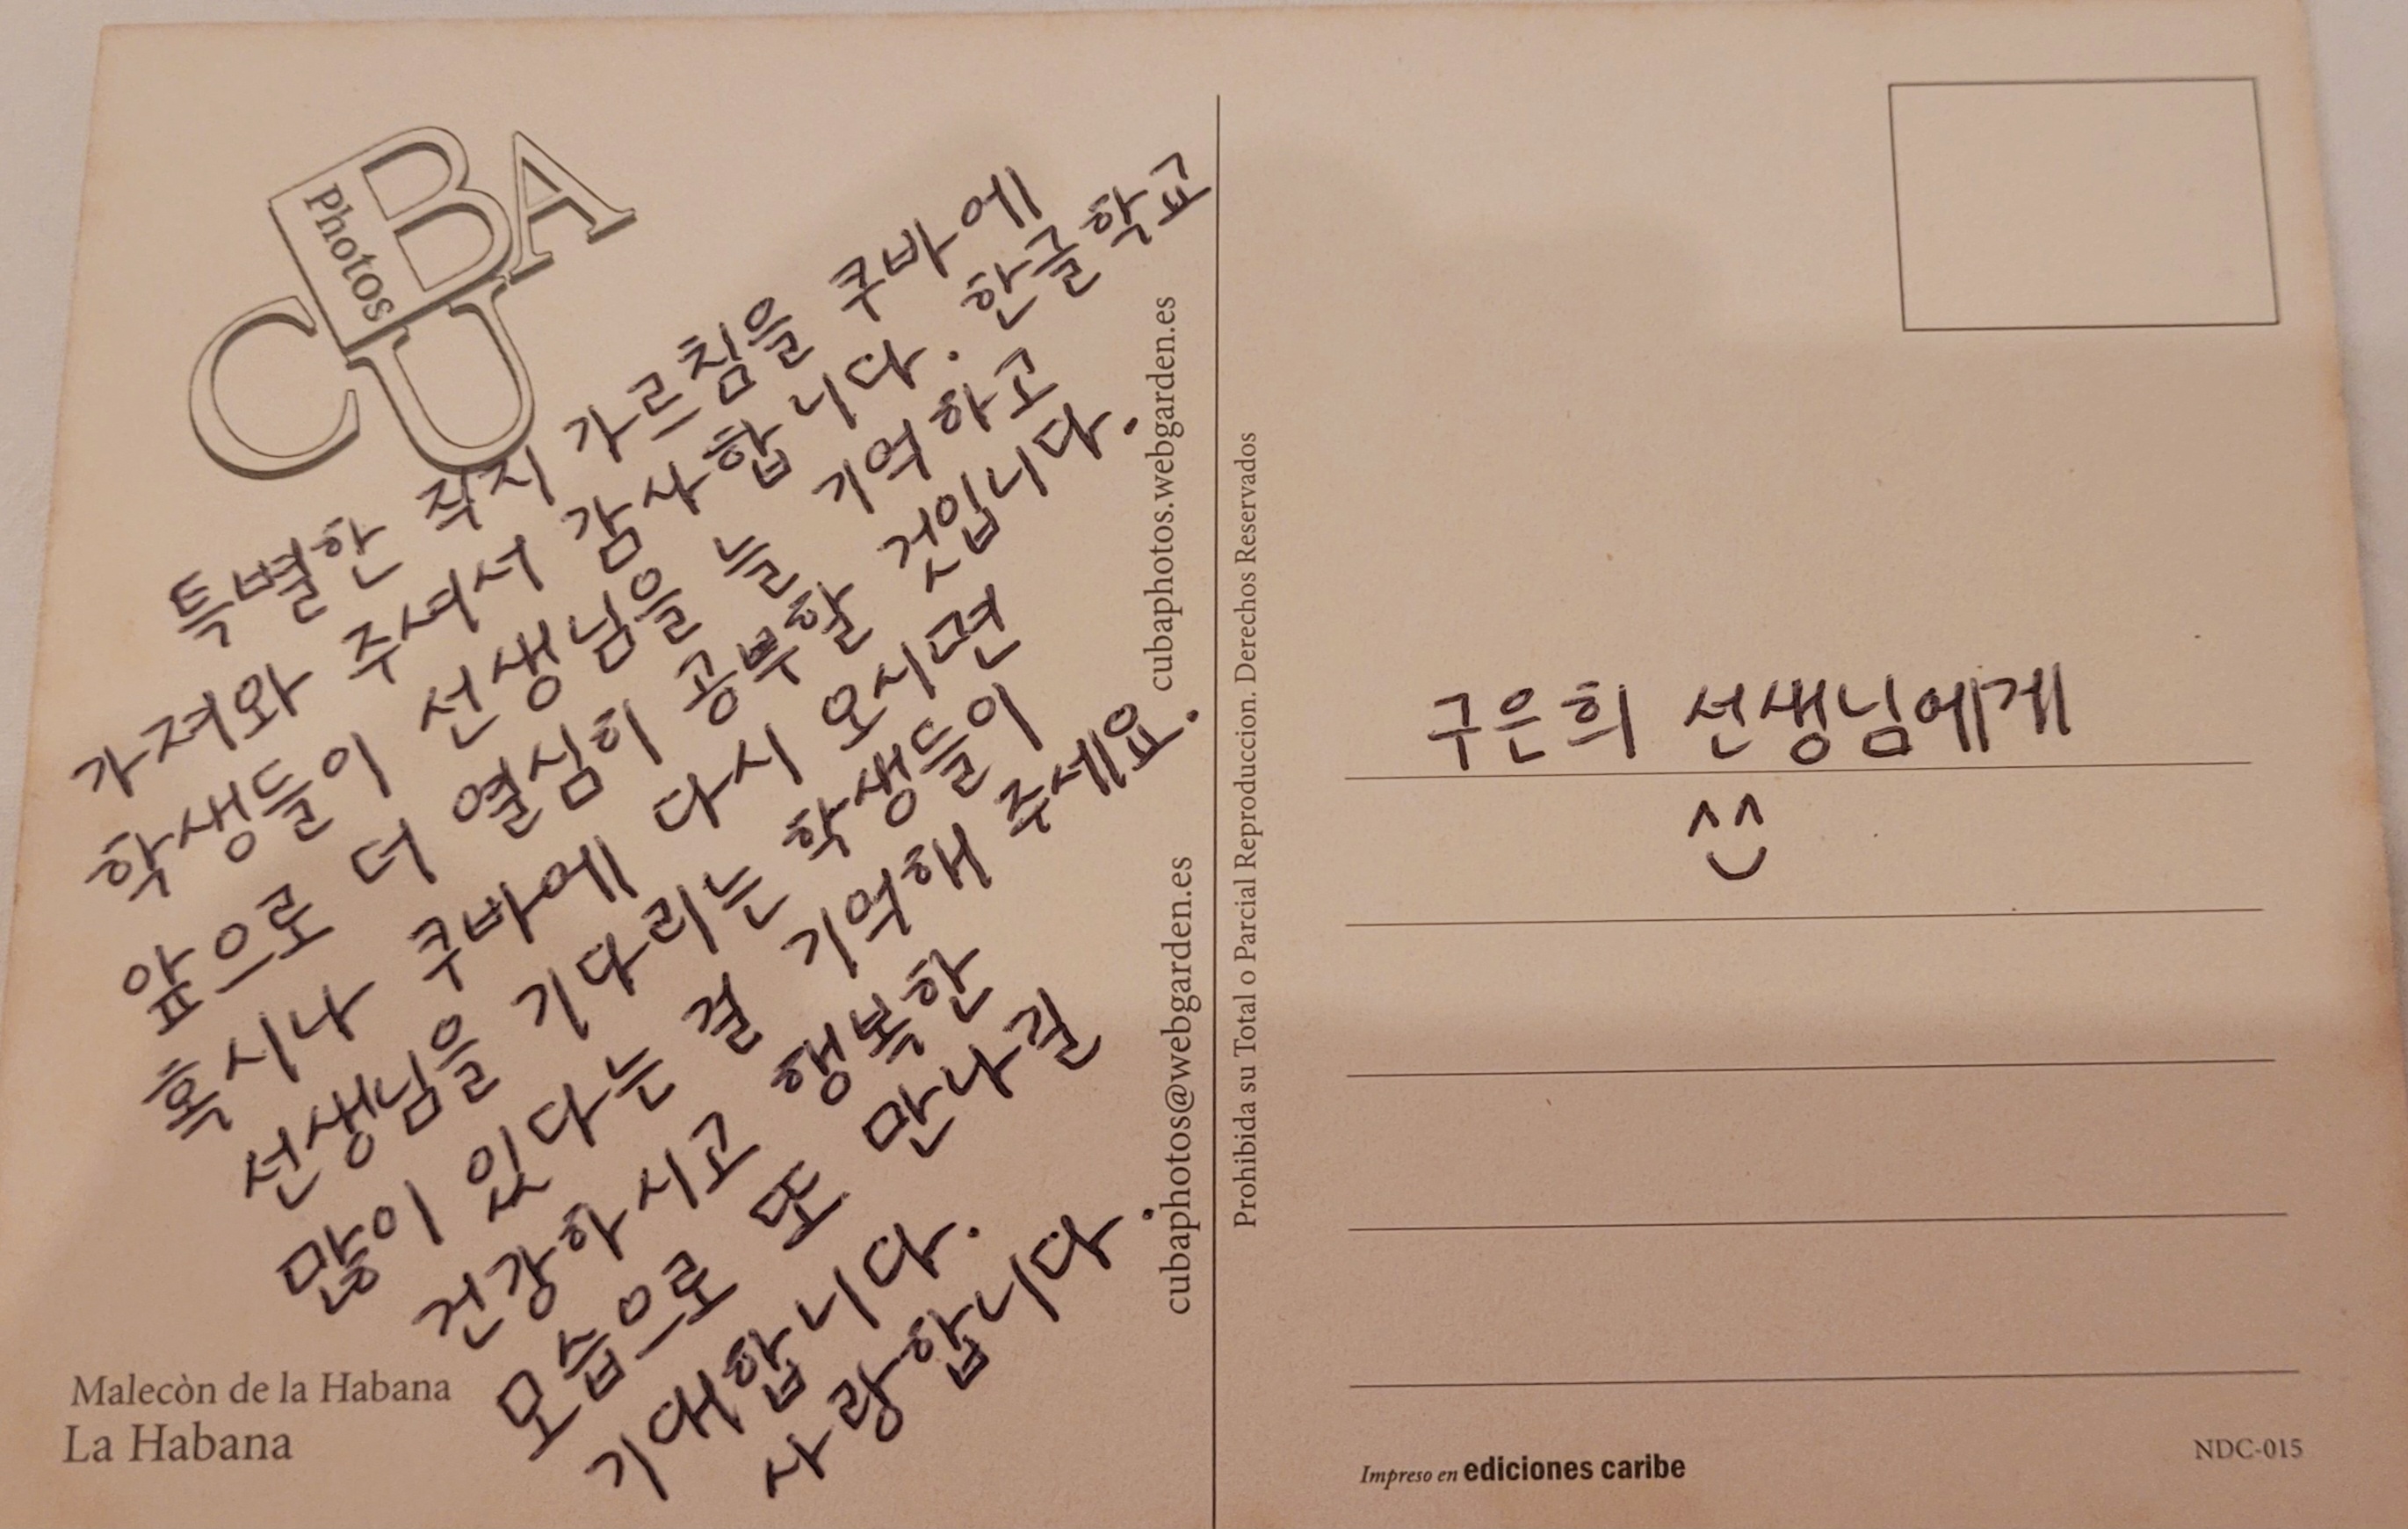 CUBA
Photos
특별한 직지 가르침을 쿠바에
가져와 주셔서 감사합니다. 한글학교
학생들이 선생님을 늘 기억하고
앞으로 더 열심히 공부할 것입니다.
혹시나 쿠바에 다시 오시면
선생님을 기다리는 학생들이
많이 있다는 걸 기억해 주세요.
건강하시고 행복한
모습으로 또 만나길
기대합니다.
사랑합니다.
Malecòn de la Habana
La Habana
cubaphotos.webgarden.es
cubaphotos@webgarden.es
Prohibida su Total o Parcial Reproduccion. Derechos Reservados
구은희 선생님에게
^^
Impreso en ediciones caribe
NDC-015